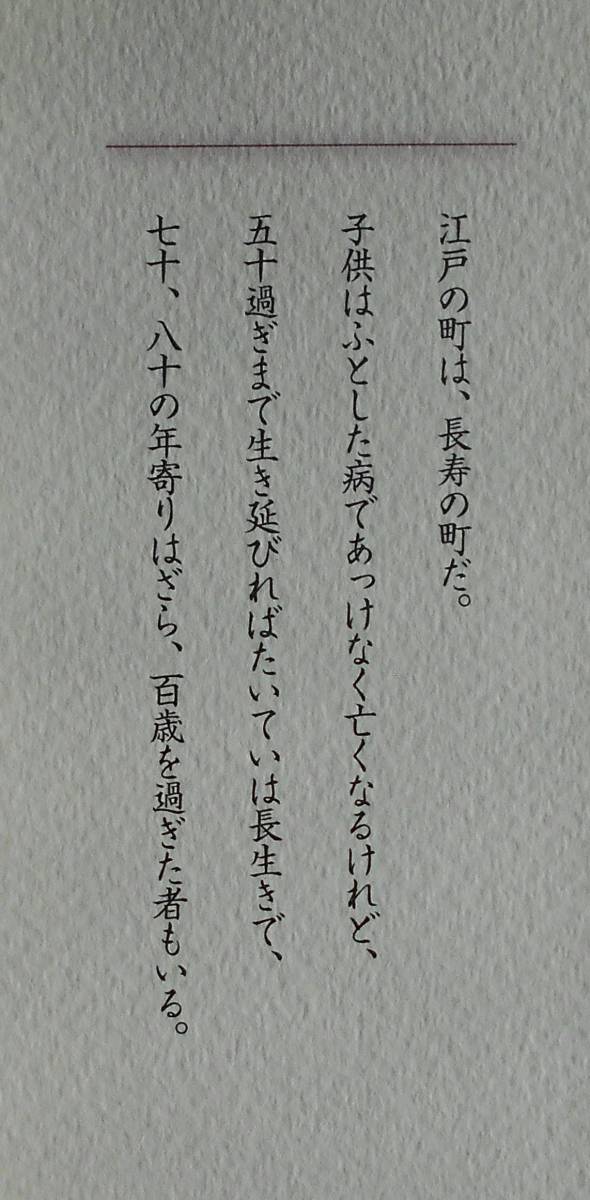 江戸の町は、長寿の町だ。
子供はふとした病であっけなく亡くなるけれど、
五十過ぎまで生き延びればたいていは長生きで、
七十、八十の年寄りはざら、百歳を過ぎた者もいる。